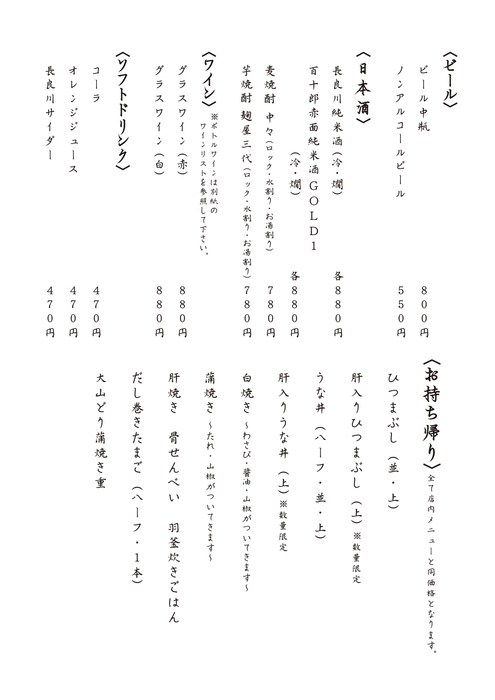 〈ビール〉
ビール中瓶 800円
ノンアルコールビール 550円
〈日本酒〉
長良川純米酒(冷・燗) 各880円
百十郎赤面純米酒GOLD1
(冷・燗) 各880円
麦焼酎 中々(ロック・水割り・お湯割り) 780円
芋焼酎 麹屋三代(ロック・水割り・お湯割り) 780円
〈ワイン〉
※ボトルワインは別紙の
ワインリストを参照して下さい。
グラスワイン(赤) 880円
グラスワイン(白) 880円
〈ソフトドリンク〉
コーラ 470円
オレンジジュース 470円
長良川サイダー 470円
〈お持ち帰り〉全て店内メニューと同価格となります。
ひつまぶし(並・上)
肝入りひつまぶし(上)※数量限定
うな丼(ハーフ・並・上)
肝入りうな丼(上)※数量限定
白焼き ~わさび・醤油・山椒がついてきます~
蒲焼き ~たれ・山椒がついてきます~
肝焼き 骨せんべい 羽釜炊きごはん
だし巻きたまご(ハーフ・1本)
大山どり蒲焼き重